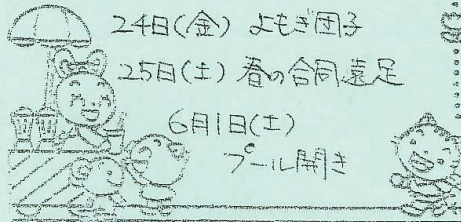 24日(金) よもぎ団子
25日(土) 春の合同遠足
6月1日(土)
プール開き